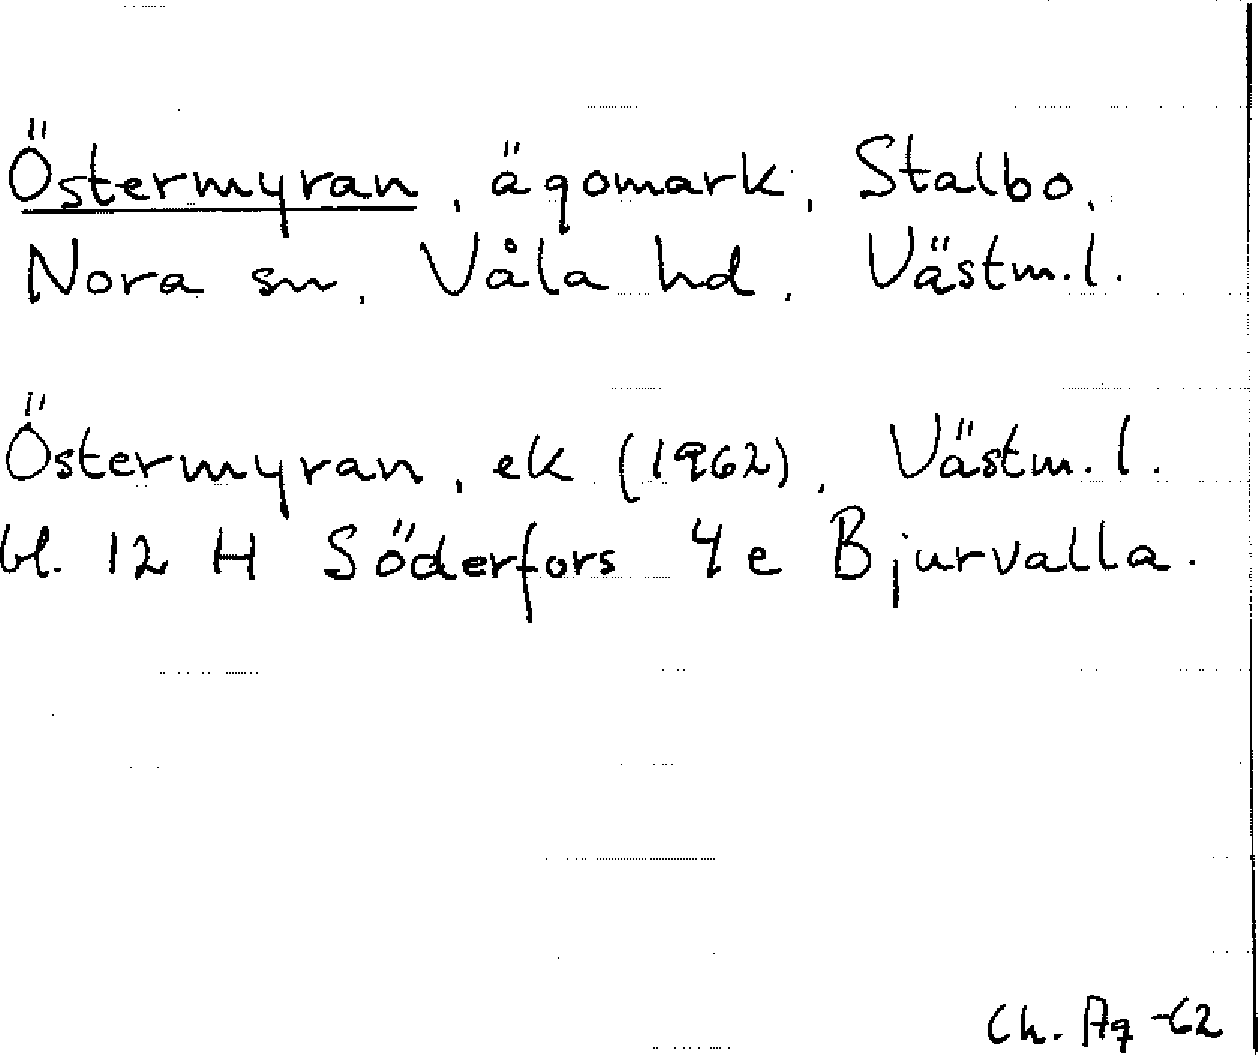 Östermyran, ägomark, Stalbo,
Nora sn, Våla hd, Västm.l.
Östermyran, ek (1962), Västm.l.
bl. 12 H Söderfors 4e Bjurvalla.
Ch. Ag -62